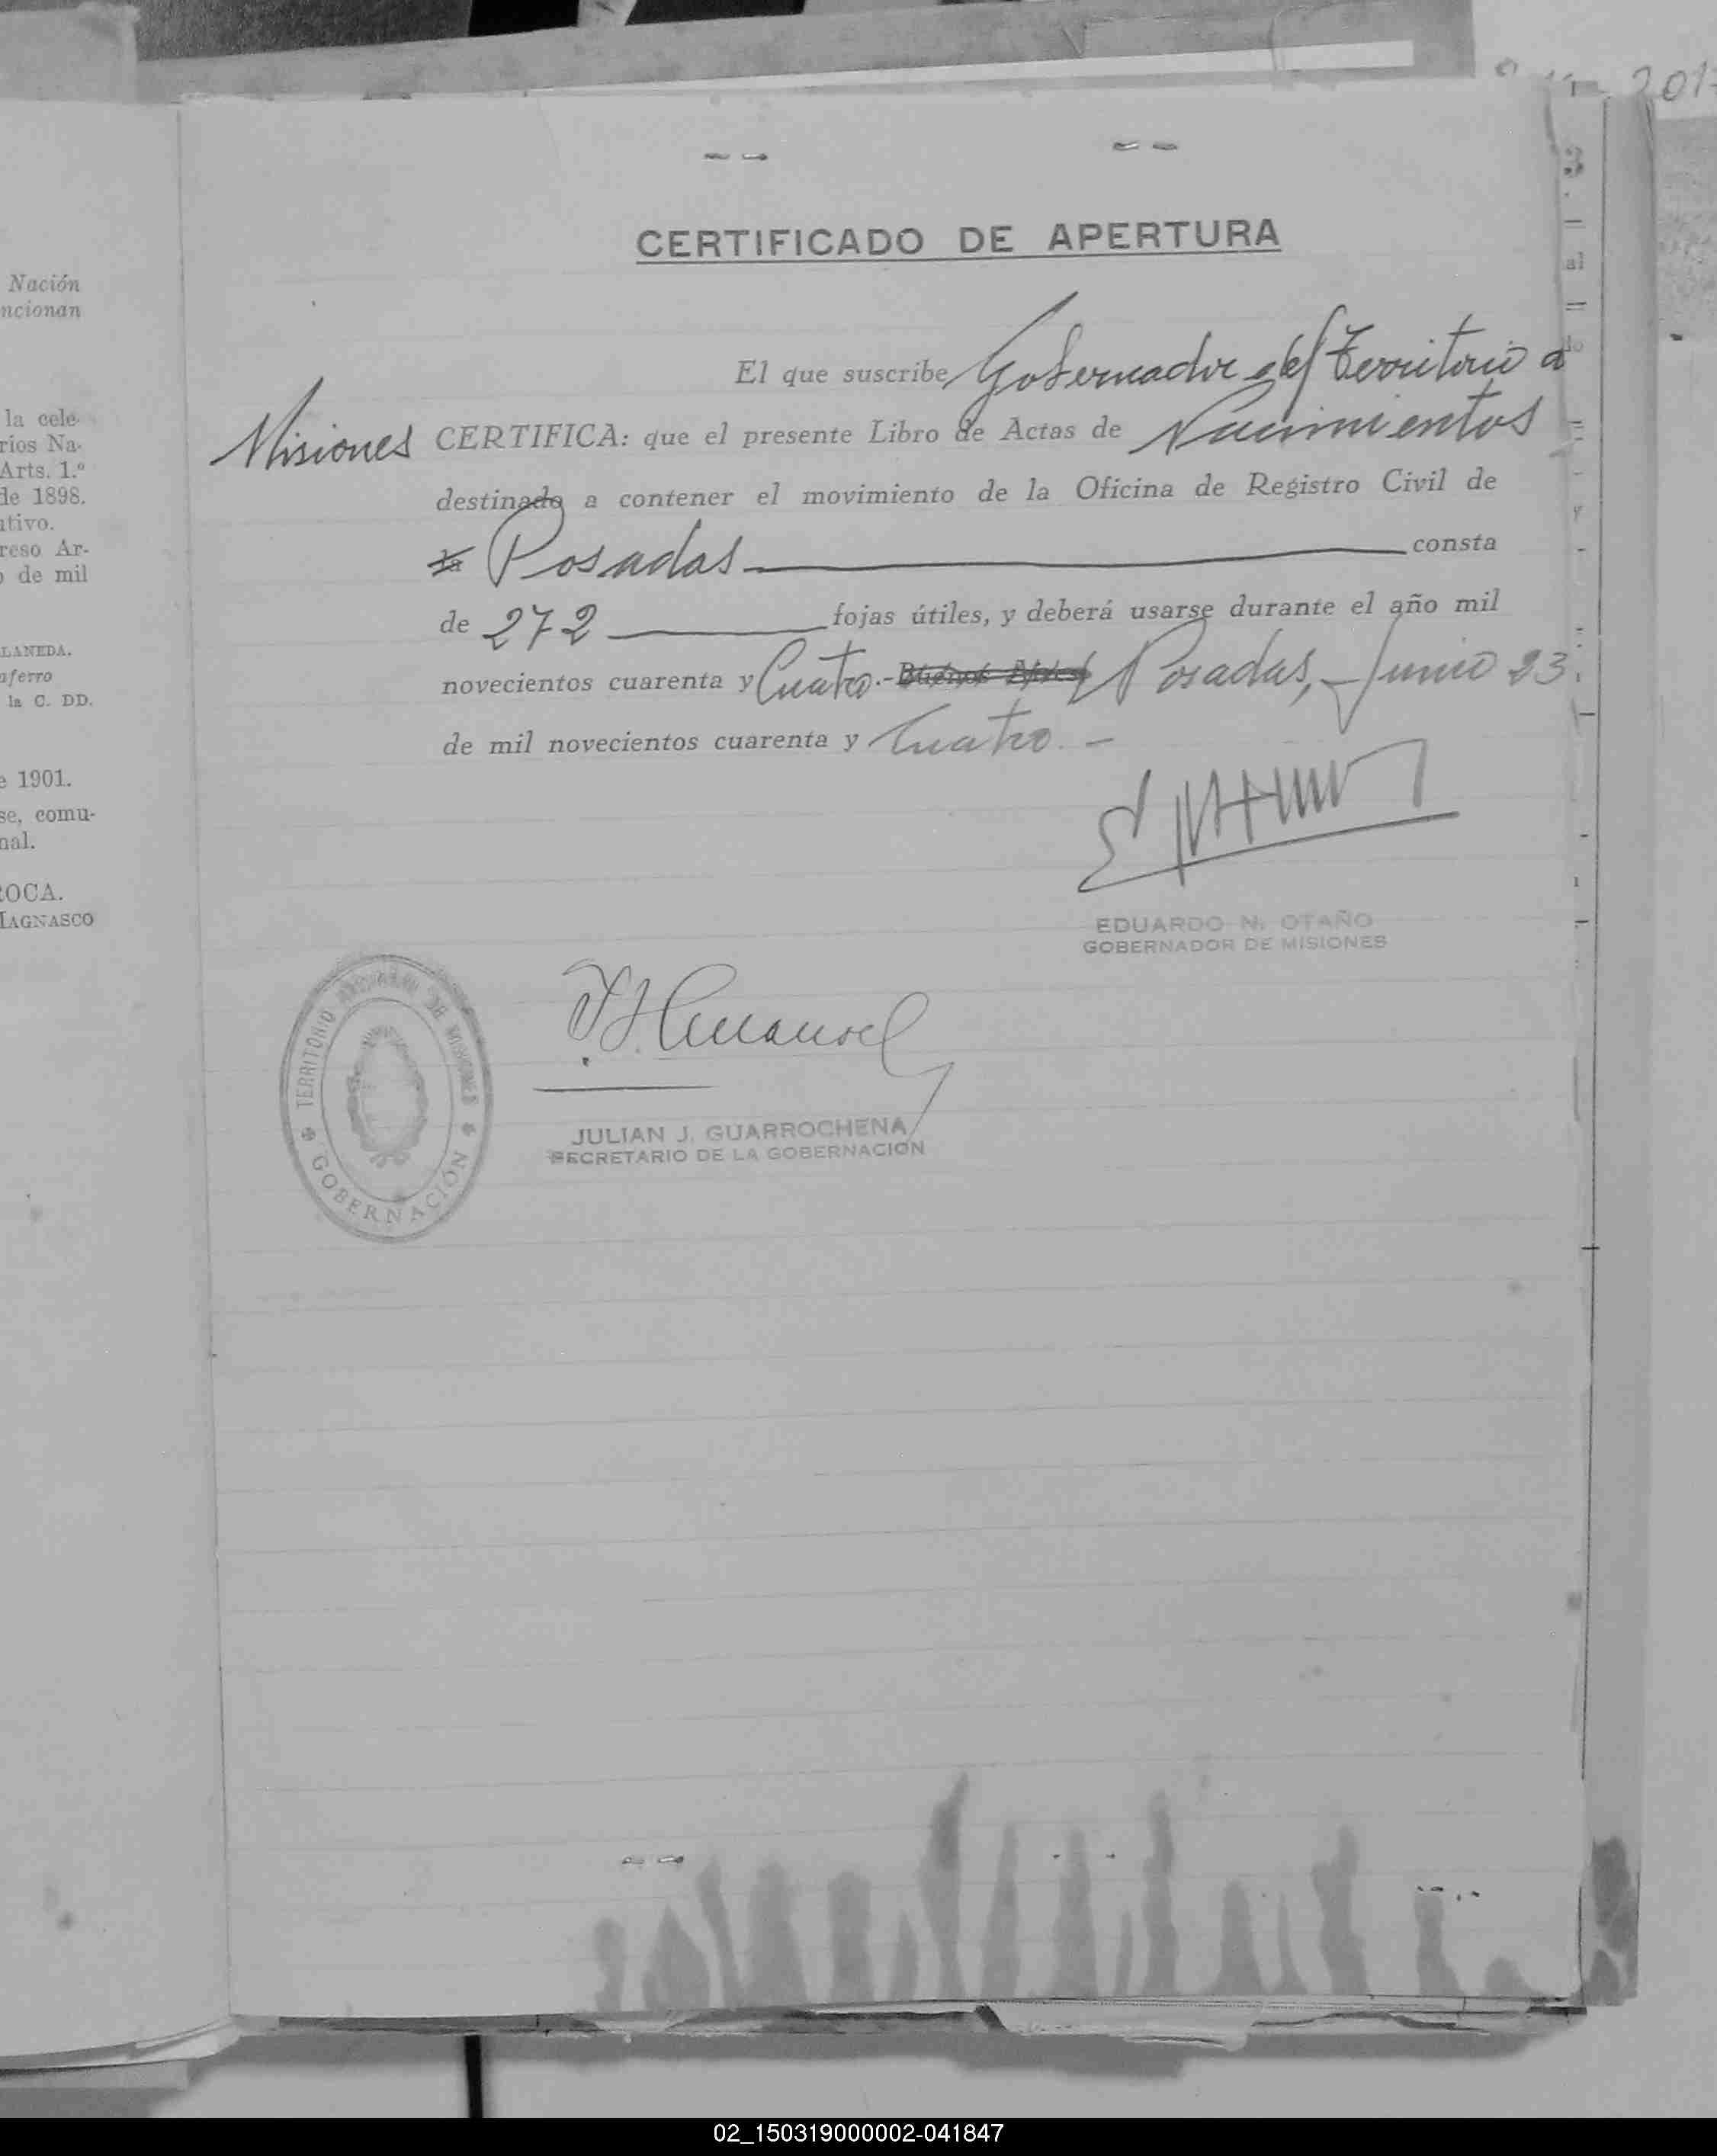 201
Nación
ncionan
la cele-
rios Na-
Arts. 1.º
de 1898.
ativo.
reso Ar-
o de mil
LANEDA.
aferro
la C. DD.
e 1901.
se, comu-
nal.
ROCA.
MAGNASCO
CERTIFICADO DE APERTURA
El que suscribe Gobernador del Territorio d
Misiones CERTIFICA: que el presente Libro de Actas de Nacimientos
destinado a contener el movimiento de la Oficina de Registro Civil de
la Posadas consta
de 272 fojas útiles, y deberá usarse durante el año mil
novecientos cuarenta y Cuatro.- Buenos Aires, Posadas, Junio 23
de mil novecientos cuarenta y Cuatro.-
EDUARDO N. OTAÑO
GOBERNADOR DE MISIONES
TERRITORIO NACIONAL DE MISIONES
GOBERNACIÓN
JULIAN J. GUARROCHENA
SECRETARIO DE LA GOBERNACION
al
02_150319000002-041847